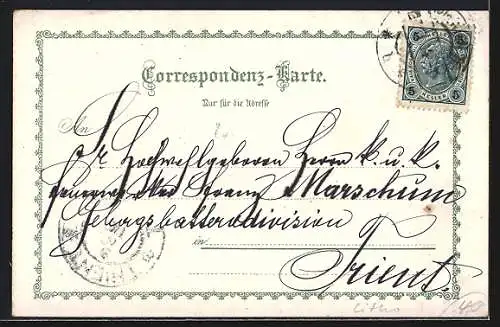 5 5
HELLER
Correspondenz-Karte.
Nur für die Adresse
An
Sr Hochwohlgeboren Herrn k. u. k.
Franz Marschum
Gebirgsbatteriedivision
in
Trient.
Litho